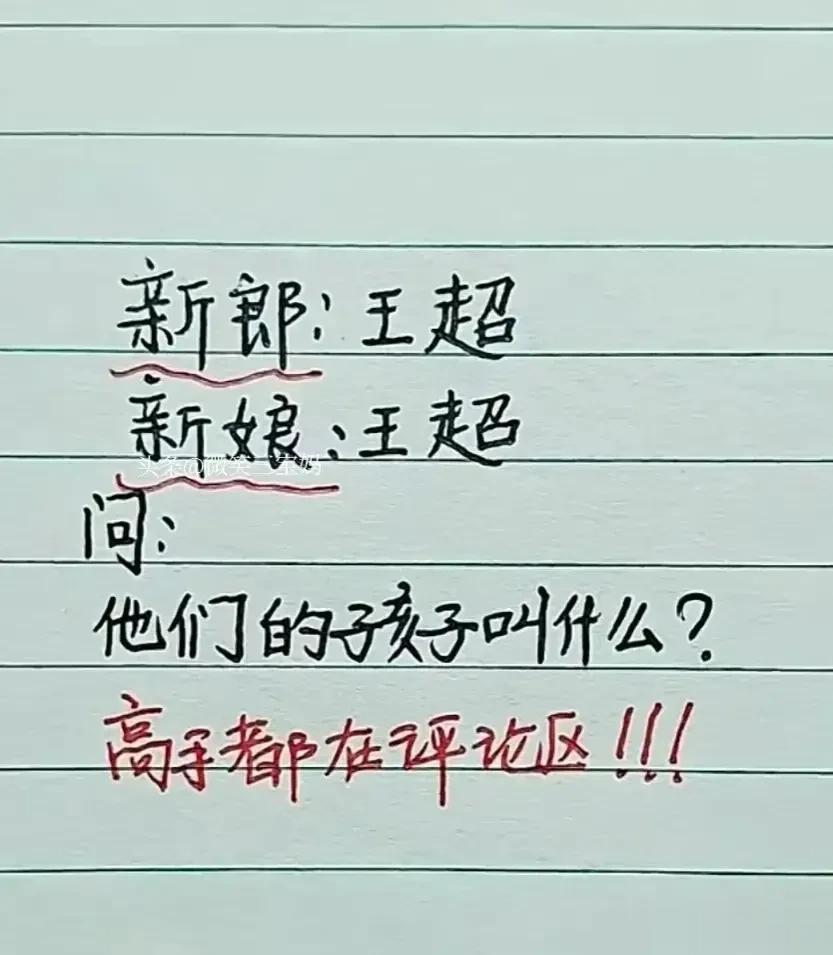 新郎:王超
新娘:王超
头条@微笑三宝妈
问:
他们的孩子叫什么?
高手都在评论区!!!